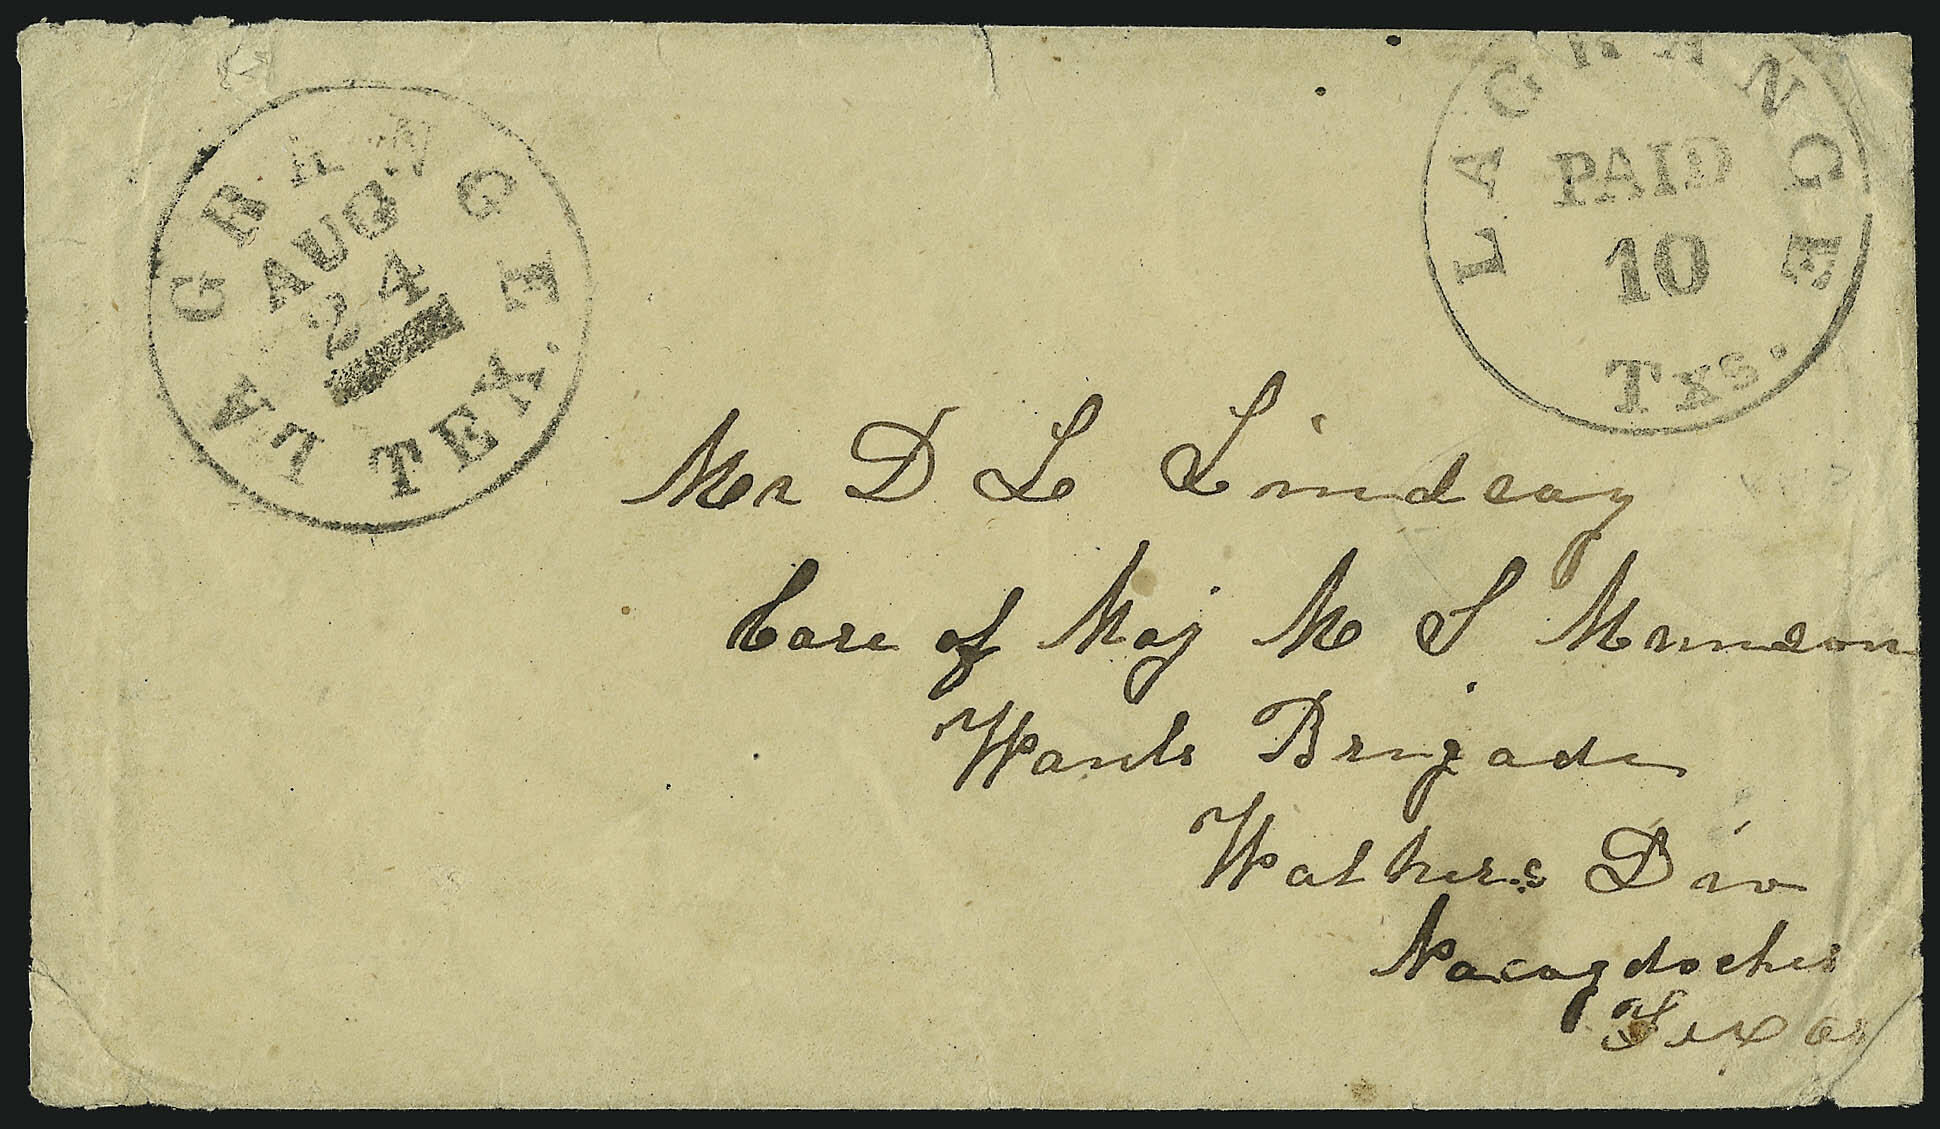 LA GRANGE
AUG
24
TEX.
LA GRANGE
PAID
10
Txs.
Mr D L Lindsay
Care of Maj M S Munson
Wauls Brigade
Walkers Div
Nacagdoches
Texas